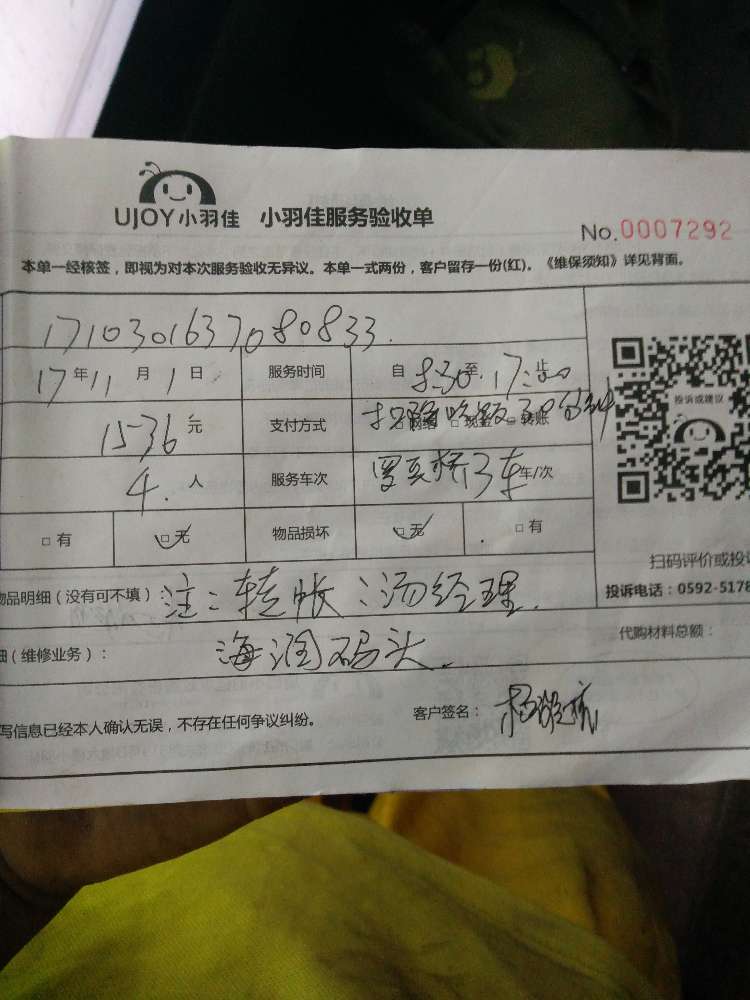 UJOY小羽佳 小羽佳服务验收单
No.0007292
本单一经核签，即视为对本次服务验收无异议。本单一式两份，客户留存一份(红)。《维保须知》详见背面。
1710301637080833
17年11月1日 服务时间 自8:30至17:00止
1536元 支付方式 扣除吃饭30分钟 □网络 □现金 □转账
投诉或建议
4.人 服务车次 3车 车/次
□有 □无 物品损坏 □无 □有
扫码评价或投诉
物品明细（没有可不填）：注：转帐：汤经理.
投诉电话：0592-5178
细（维修业务）：海润码头.
代购材料总额：
写信息已经本人确认无误，不存在任何争议纠纷。 客户签名：杨